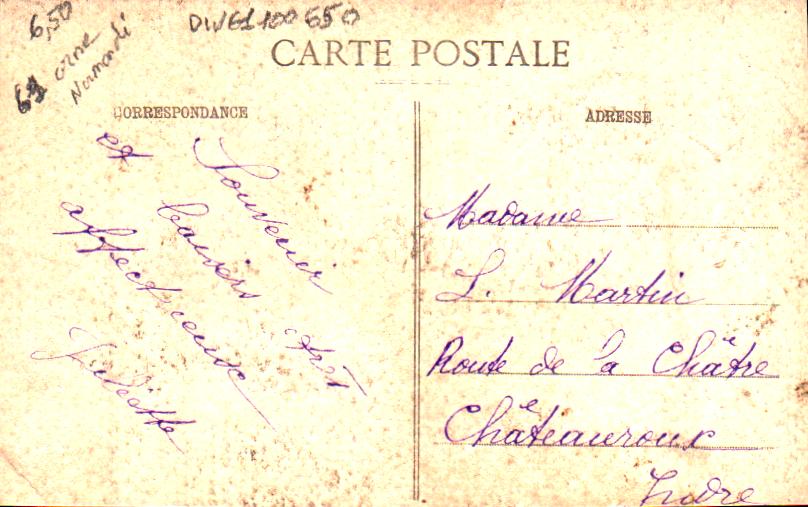 6,50
61 orne
Normandi
DIV61100650
CARTE POSTALE
CORRESPONDANCE
Souvenir
et baisers très
affectueux
Juliette
ADRESSE
Madame
L. Martin
Route de la Châtre
Châteauroux
Indre